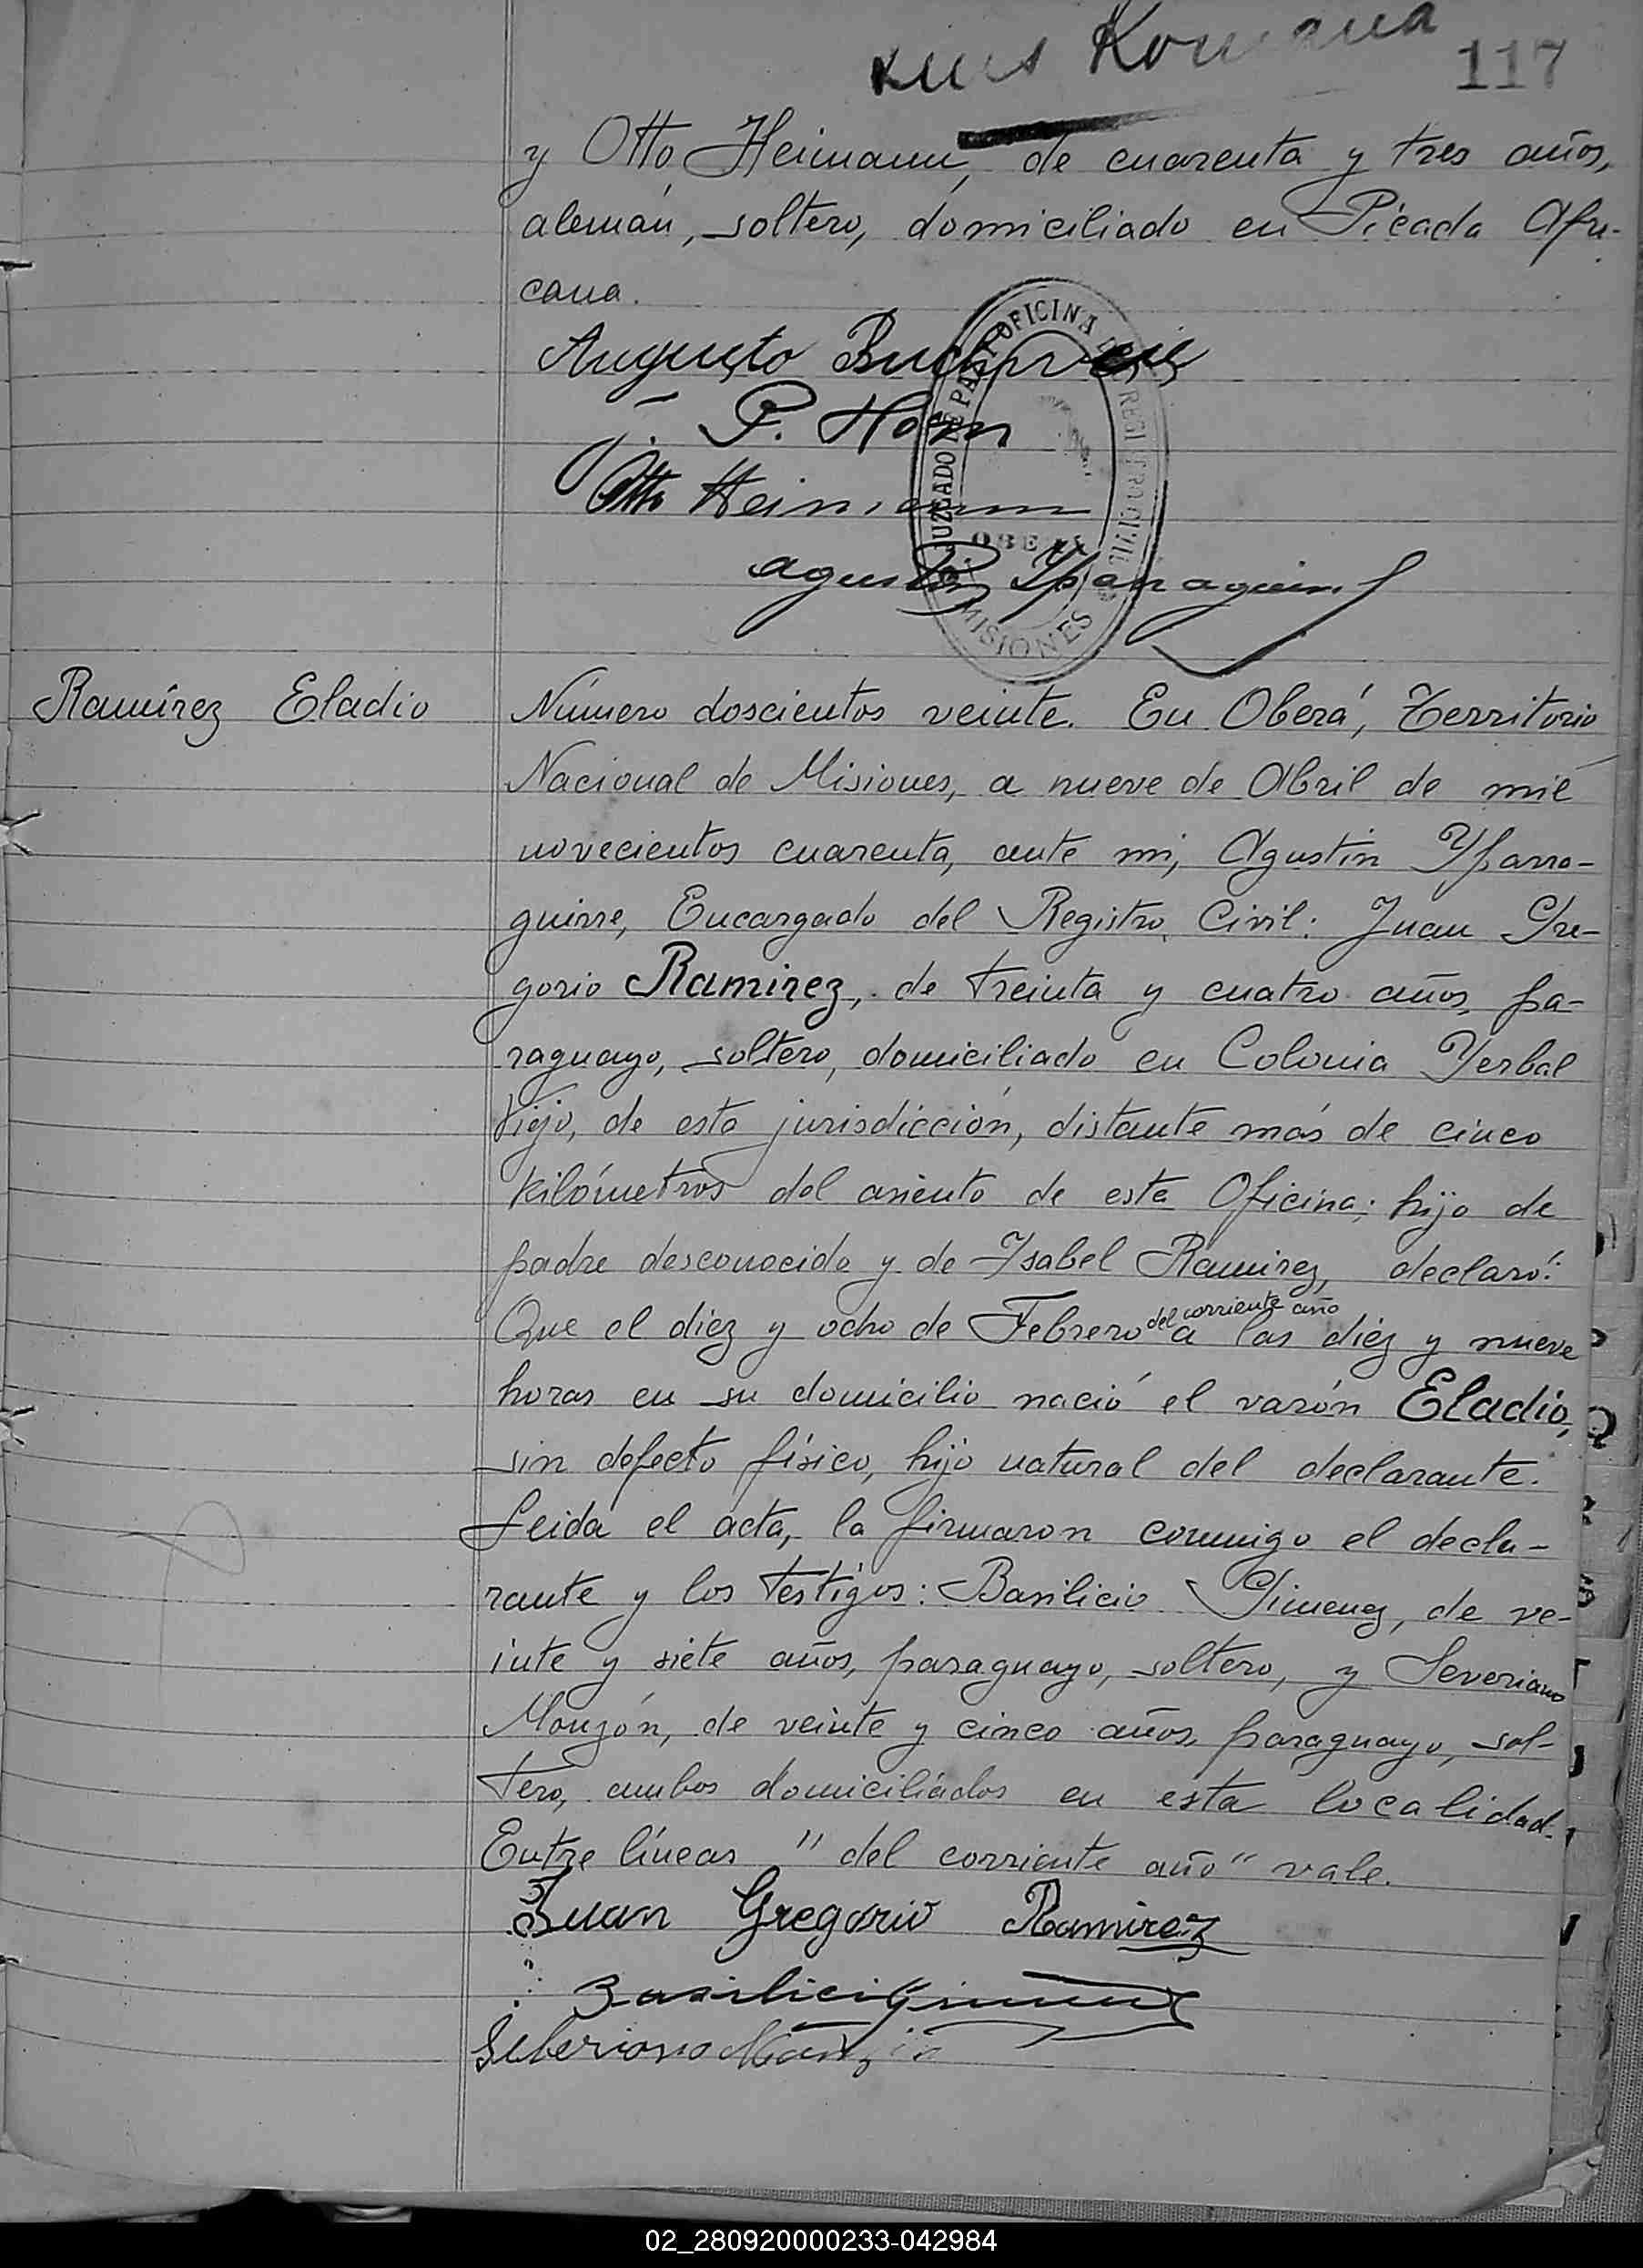 117
y Otto Heimann, de cuarenta y tres años,
alemán, soltero, domiciliado en Picada Afri-
cana.
Augusto
P. Horn
Otto Heimann
OFICINA DEL REGISTRO CIVIL
JUZGADO DE PAZ
OBERÁ
MISIONES
Ramírez Eladio
Número doscientos veinte. En Oberá, Territorio
Nacional de Misiones, a nueve de Abril de mil
novecientos cuarenta, ante mi, Agustin Yparra-
guirre, Encargado del Registro Civil: Juan Gre-
gorio Ramirez, de treinta y cuatro años, pa-
raguayo, soltero, domiciliado en Colonia Yerbal
Viejo, de esta jurisdicción, distante más de cinco
kilómetros del asiento de esta Oficina; hijo de
padre desconocido y de Ysabel Ramirez, declaró:
Que el diez y ocho de Febrero del corriente año a las diez y nueve
horas en su domicilio nació el varón Eladio,
sin defecto físico, hijo natural del declarante.
Leida el acta, la firmaron conmigo el decla-
rante y los testigos: Basilicio Gimenez, de ve-
inte y siete años, paraguayo, soltero, y Severiano
Monzón, de veinte y cinco años, paraguayo, sol-
tero, ambos domiciliados en esta localidad.
Entre líneas "del corriente año" vale.
Juan Gregorio Ramirez
Basilicio Gimenez
Seberiano
02_280920000233-042984